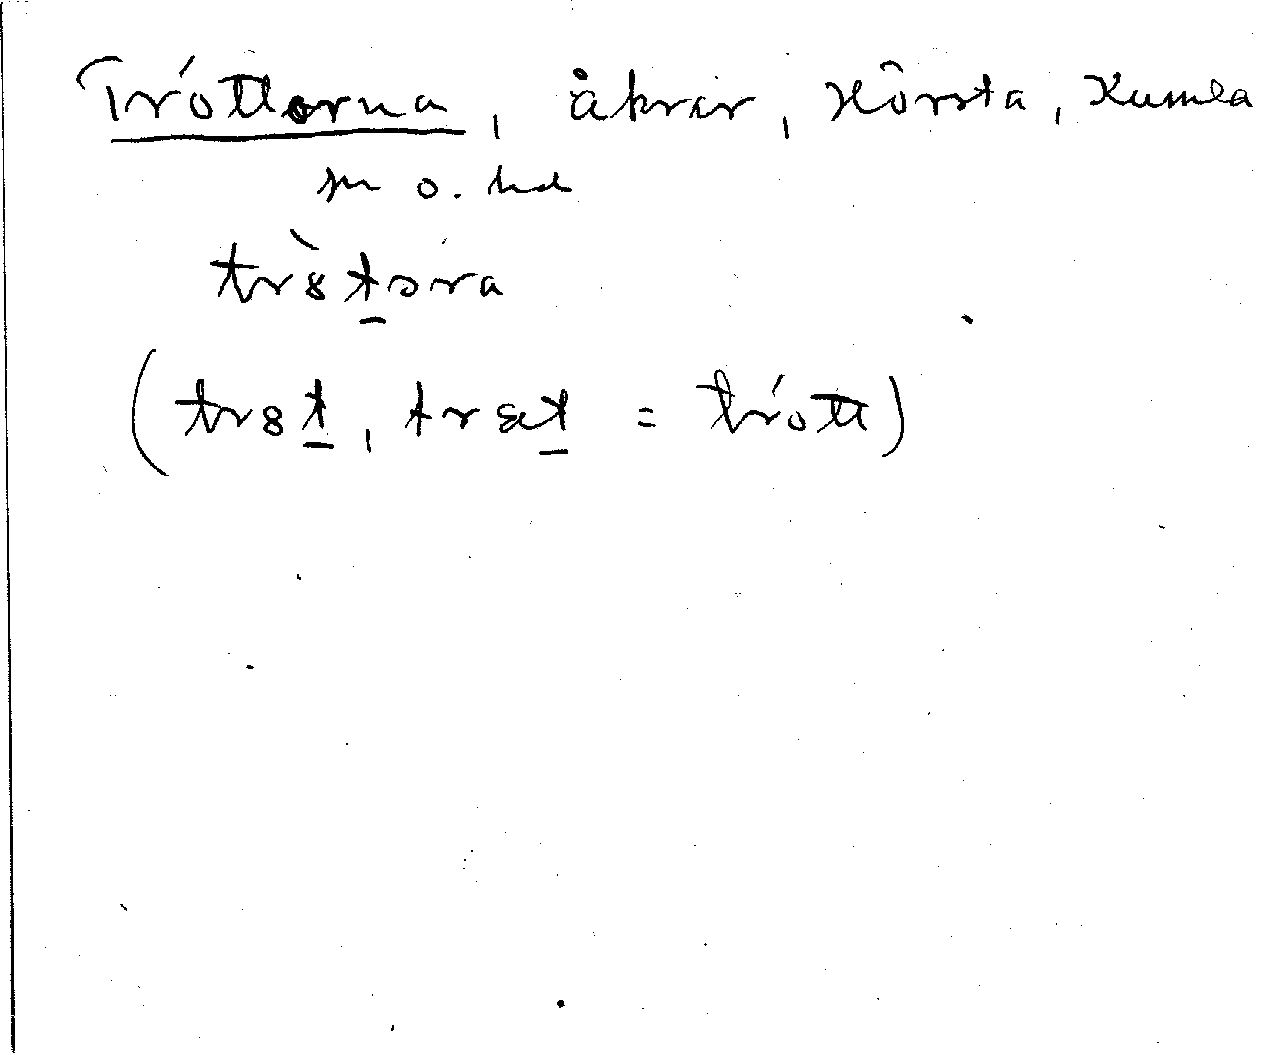 Tróttorna, åkrar, Hörsta, Kumla
sn o. hd
tr8̀tora
(tr8t, træt = trótt)